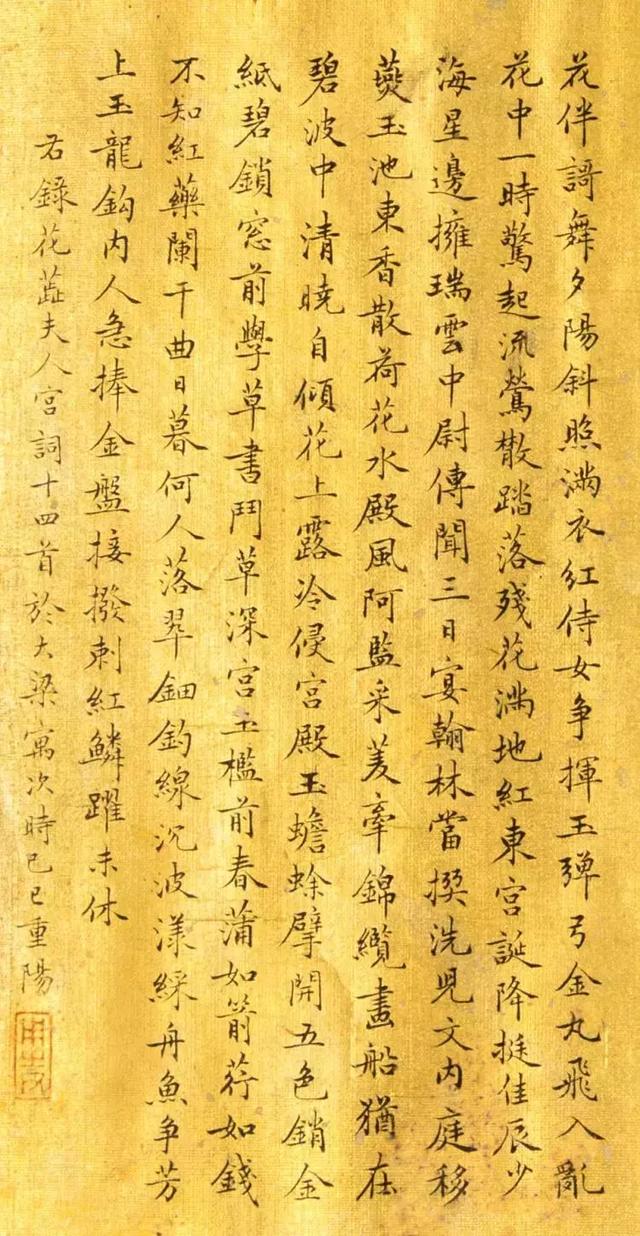 花伴謌舞夕陽斜照滿衣紅侍女爭揮玉彈弓金丸飛入亂
花中一時驚起流鶯散踏落殘花滿地紅東宮誕降挺佳辰少
海星邊擁瑞雲中尉傳聞三日宴翰林當撰洗兒文內庭移
燕玉池東香散荷花水殿風阿監采菱牽錦纜畫船猶在
碧波中清曉自傾花上露冷侵宮殿玉蟾蜍擘開五色銷金
紙碧鎖窓前學草書鬥草深宮玉檻前春蒲如箭荇如錢
不知紅藥闌干曲日暮何人落翠鈿釣線沉波漾綵舟魚爭芳
上玉龍鈎內人急捧金盤接撥剌紅鱗躍未休
右錄花蕋夫人宮詞十四首於大梁寓次時己巳重陽